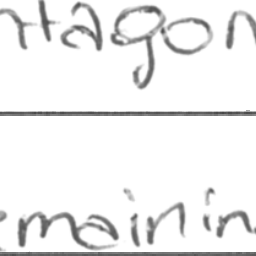 ntagon
emainin